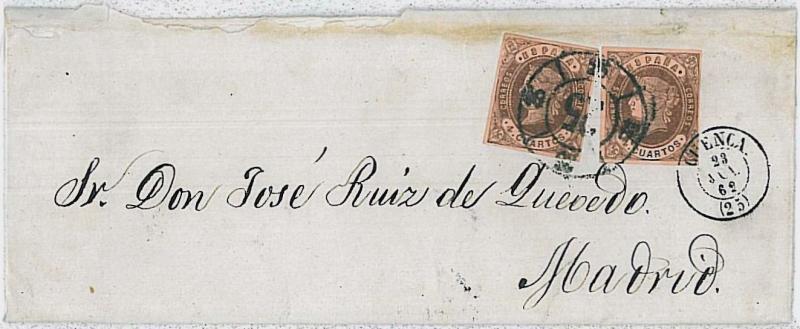 ESPAÑA
CORREOS
4 CUARTOS
ESPAÑA
CORREOS
CUARTOS
CUENCA
23
JUL
62
(25)
Sr. Don José Ruiz de Quevedo.
Madrid.